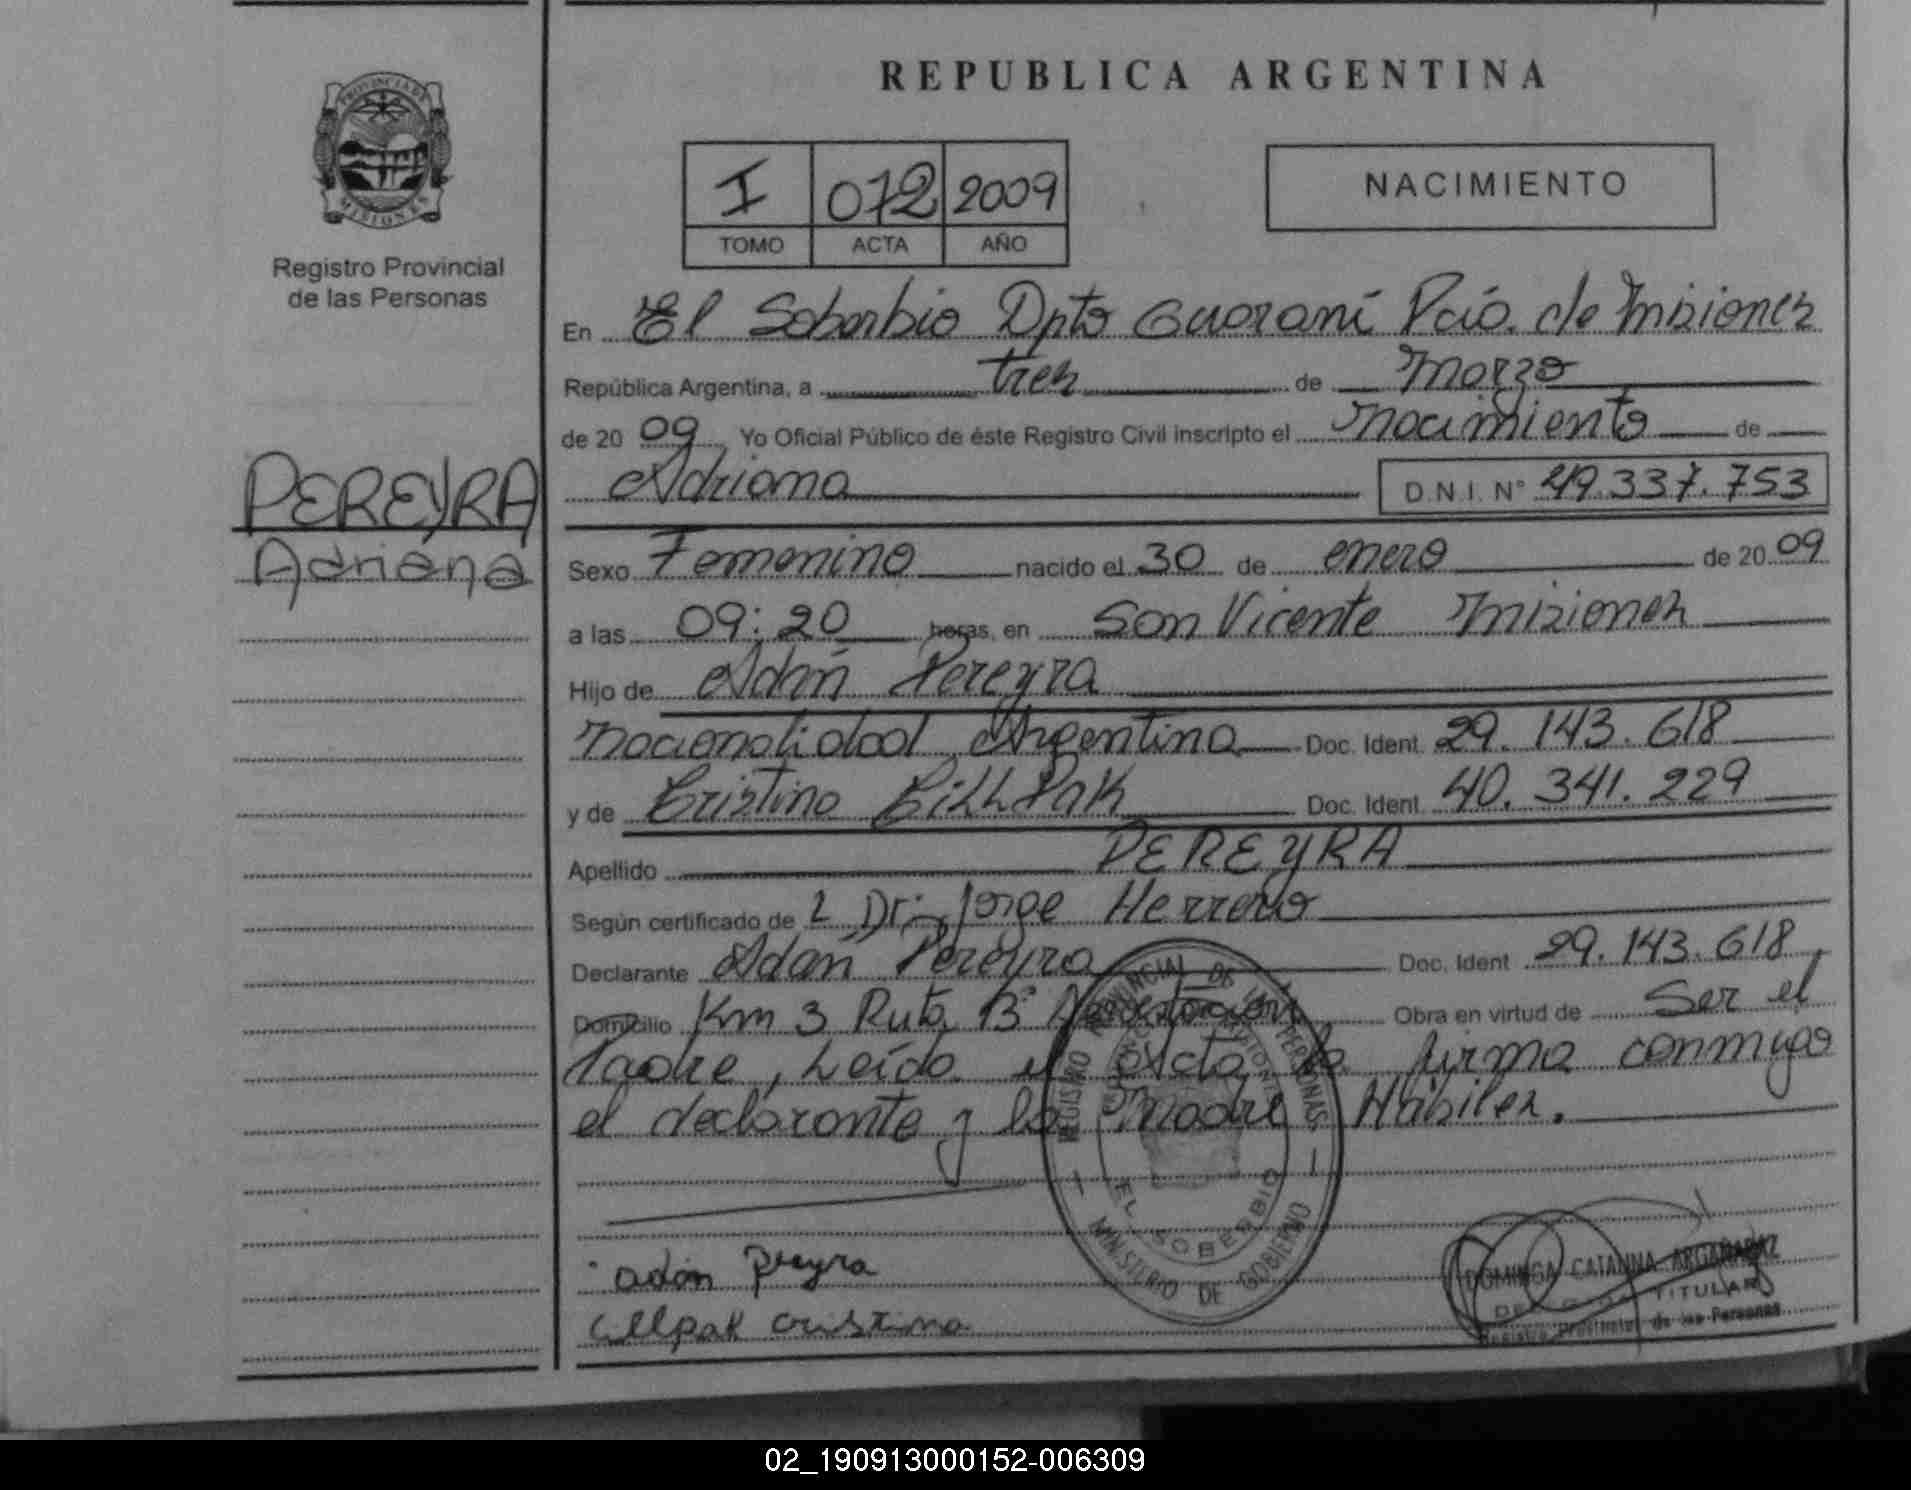 REPUBLICA ARGENTINA
PROVINCIA DE
MISIONES
Registro Provincial
de las Personas
I 072 2009
TOMO ACTA AÑO
NACIMIENTO
En El Soberbio Dpto Guaraní Pcia. de Misiones
República Argentina, a tres de Marzo
de 20 09 Yo Oficial Público de éste Registro Civil inscripto el nacimiento de
Adriana D.N.I. N° 49.337.753
PEREYRA
Adriana
Sexo Femenino nacido el 30 de enero de 20 09
a las 09:20 horas, en San Vicente Misiones
Hijo de Adán Pereyra
nacionalidad Argentina Doc. Ident. 29.143.618
y de Cristina CillPak Doc. Ident. 40.341.229
Apellido PEREYRA
Según certificado de Dr. Jorge Herrero
Declarante Adán Pereyra Doc. Ident. 29.143.618
Domicilio Km 3 Ruta 13 Obra en virtud de Ser el
Padre, Leída el Acta la firma conmigo
el declarante y la Madre Hábiles.
REGISTRO PROVINCIAL DE LAS PERSONAS
EL SOBERBIO
MINISTERIO DE GOBIERNO
adán Pereyra
Cillpak Cristina
DOMINGA CATANNA ARGAÑARAZ
TITULAR
Registro Provincial de las Personas
02_190913000152-006309